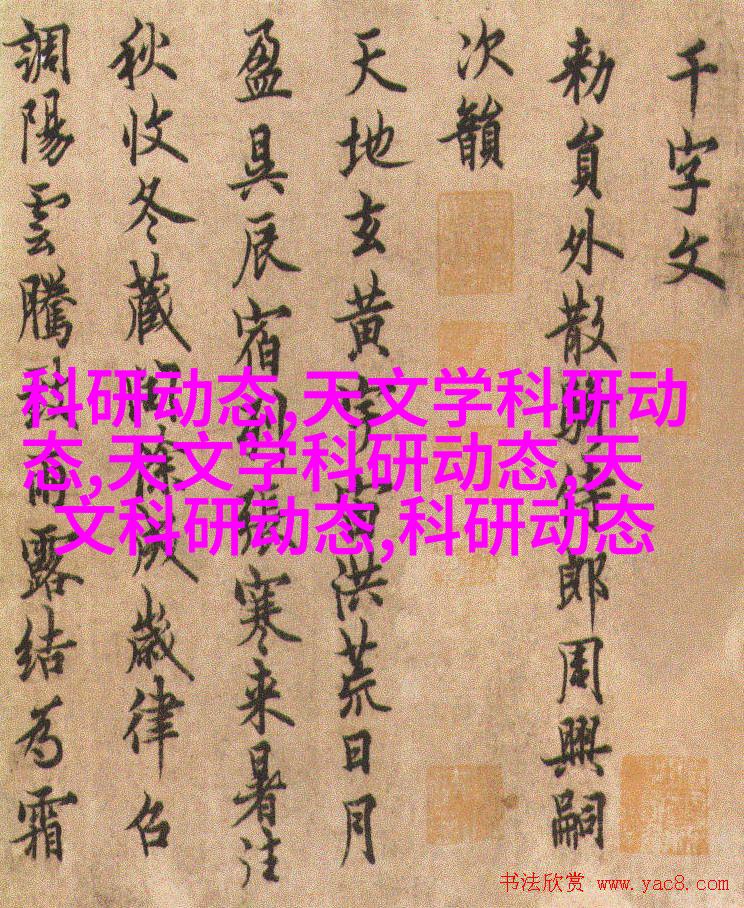 千字文
勅員外散騎侍郎周興嗣
次韻
天地玄黃宇宙洪荒日月
盈昃辰宿列張寒来暑往
秋收冬藏閏餘成歲律召
調陽雲騰致雨露結為霜
科研动态,天文学科研动
态,天文学科研动态,天
文科研动态,科研动态
书法欣赏 www.yac8.com